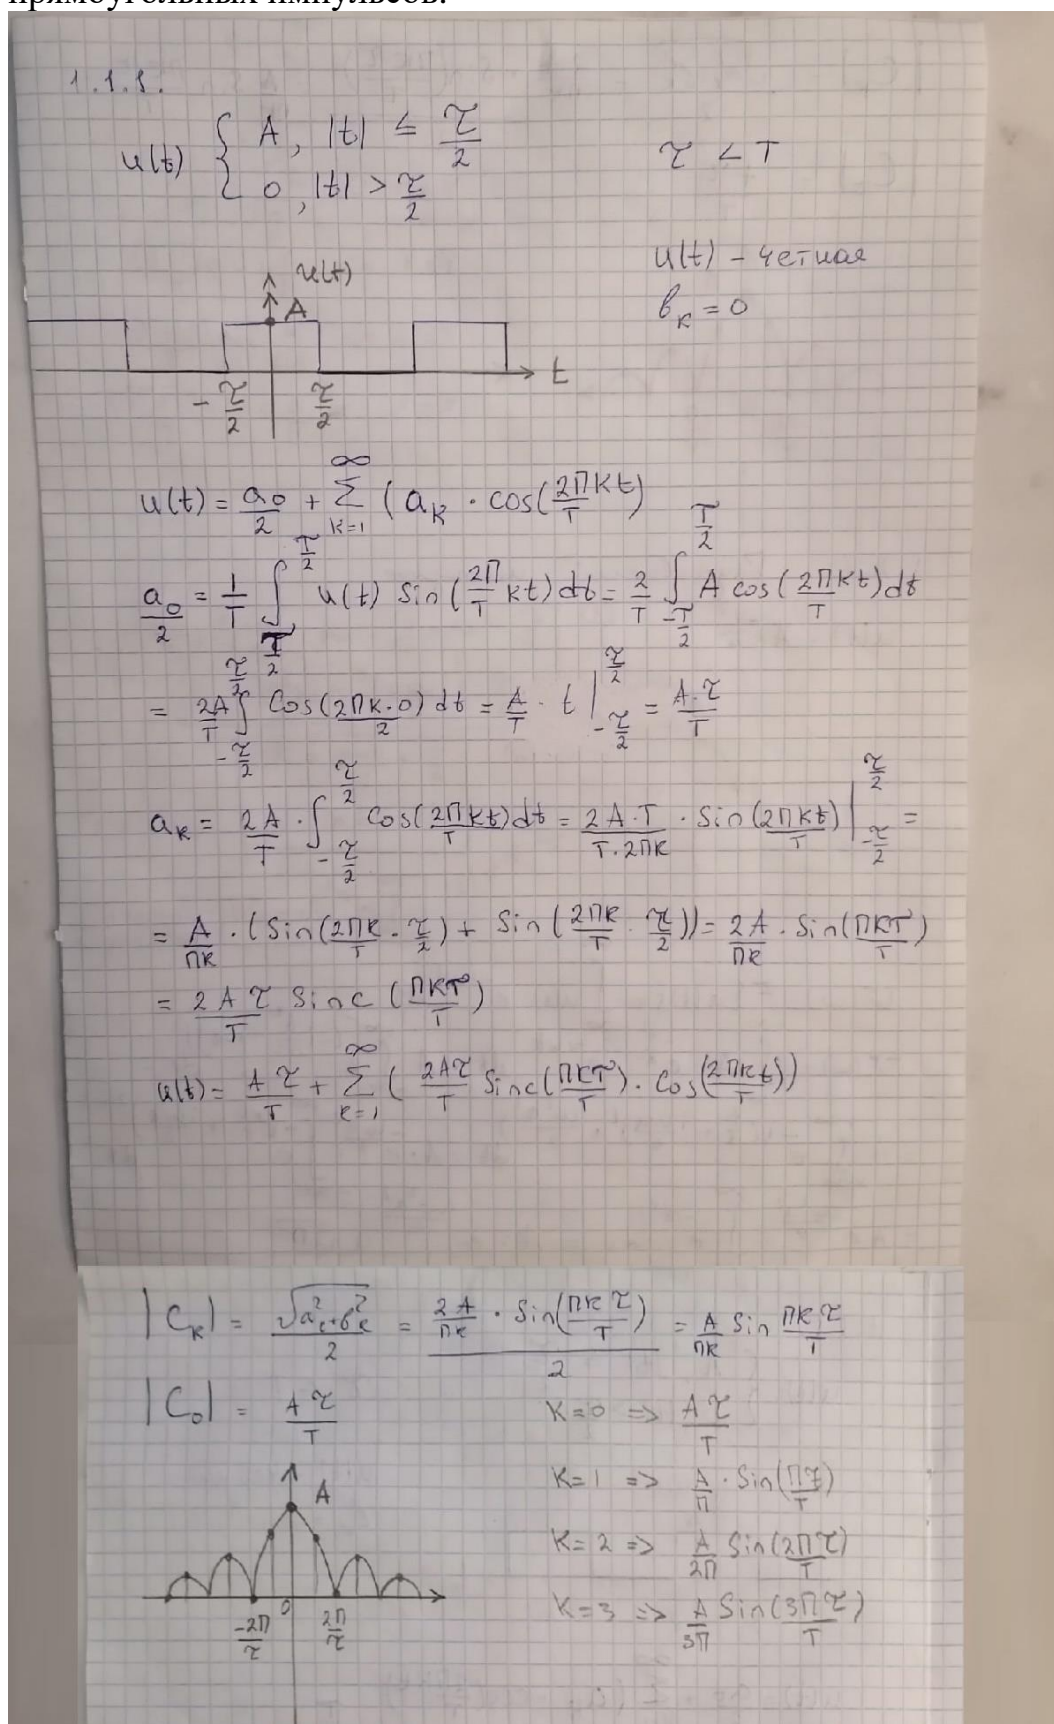 прямоугольных импульсов.
1.1.1.
u(t) { A, |t| ≤ τ/2
0, |t| > τ/2
τ < T
u(t) – четная
вк = 0
u(t)
A
t
-τ/2 τ/2
u(t) = a0/2 + ∑_{k=1}^{∞} (aк · cos(2πkt/T)
a0/2 = 1/T ∫_{T/2}^{T/2} u(t) sin(2π/T kt) dt = 2/T ∫_{-T/2}^{T/2} A cos(2πkt/T) dt
= 2A/T ∫_{-τ/2}^{τ/2} cos(2πk·0/2) dt = A/T · t |_{-τ/2}^{τ/2} = A·τ/T
aк = 2A/T · ∫_{-τ/2}^{τ/2} cos(2πkt/T) dt = 2A·T/T·2πk · sin(2πkt/T) |_{-τ/2}^{τ/2} =
= A/πk · (sin(2πk/T · τ/2) + sin(2πk/T · τ/2)) = 2A/πk · sin(πkτ/T)
= 2Aτ/T sinc (πkτ/T)
u(t) = Aτ/T + ∑_{k=1}^{∞} (2Aτ/T sinc(πkτ/T) · cos(2πkt/T))
|Cк| = √(a²к+в²к)/2 = (2A/πk · sin(πkτ/T))/2 = A/πk sin πkτ/T
|C0| = Aτ/T
K=0 => Aτ/T
K=1 => A/π · sin(πτ/T)
K=2 => A/2π sin(2πτ/T)
K=3 => A/3π sin(3πτ/T)
A
-2π/τ 0 2π/τ